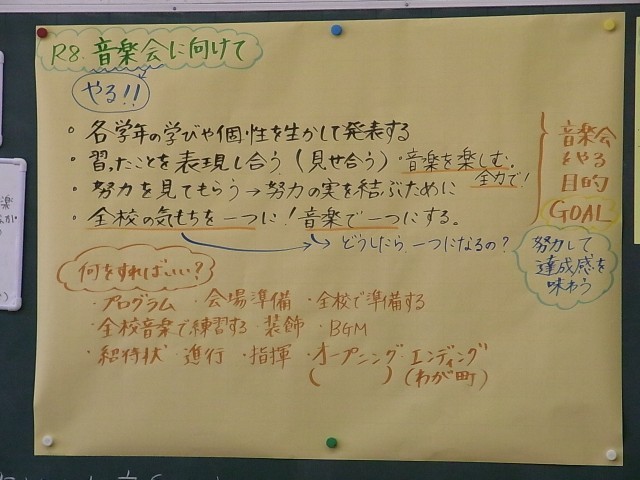 R8. 音楽会に向けて
やる!!
・各学年の学びや個性を生かして発表する
・習ったことを表現し合う(見せ合う)・音楽を楽しむ。
全力で!
・努力を見てもらう→努力の実を結ぶために
・全校の気もちを一つに!音楽で一つにする。
→どうしたら一つになるの?
音楽会
をやる
目的
GOAL
努力して
達成感を
味わう
何をすればいい?
・プログラム ・会場準備 ・全校で準備する
・全校音楽で練習する ・装飾 ・BGM
・招待状 ・進行 ・指揮 ・オープニング・エンディング
( ) (わが町)